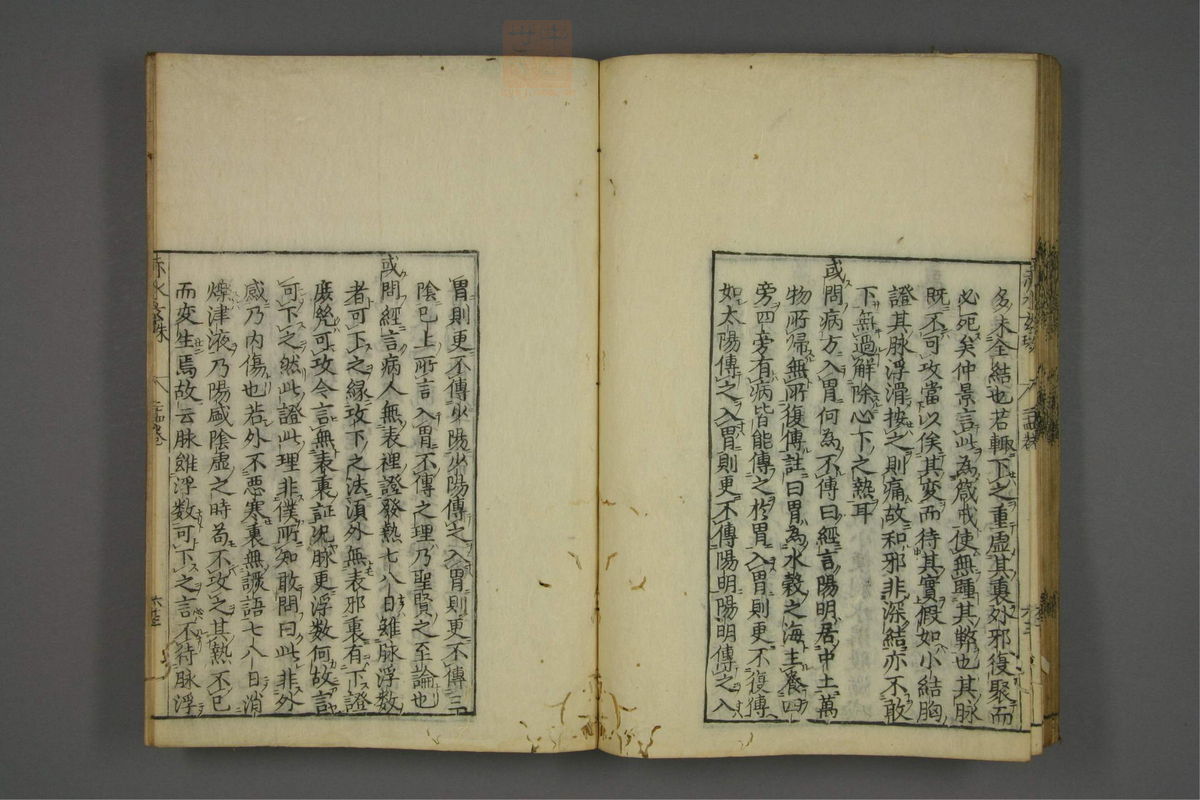 多未全結也若輙下之重虚其裏外邪復聚而
必死矣仲景言此為箴戒使無踵其弊也其脉
既不可攻當以俟其変而待其實假如小結胸
證其脉浮滑按之則痛故和邪非深結亦不敢
下無過解除心下之熱耳
或問病方入胃何為不傳曰經言陽明居中土萬
物所帰無所復傳註曰胃為水穀之海主養四
旁四旁有病皆能傳之於胃入胃則更不復傳
如太陽傳之入胃則更不傳陽明陽明傳之入
胃則更不傳少陽少陽傳之入胃則更不傳三
陰已上所言入胃不傳之理乃聖賢之至論也
或問經言病人無表裡證發熱七八日雖脉浮数
者可下之縁攻下之法須外無表邪裏有下證
庶幾可攻今言無表裏証况脉更浮数何故言
可下之然此證此理非僕所知敢問曰此非外
感乃内傷也若外不悪寒裏無譫語七八日消
爍津液乃陽盛陰虚之時苟不攻之其熱不已
而変生焉故云脉雖浮数可下之言不待脉浮
赤水玄珠